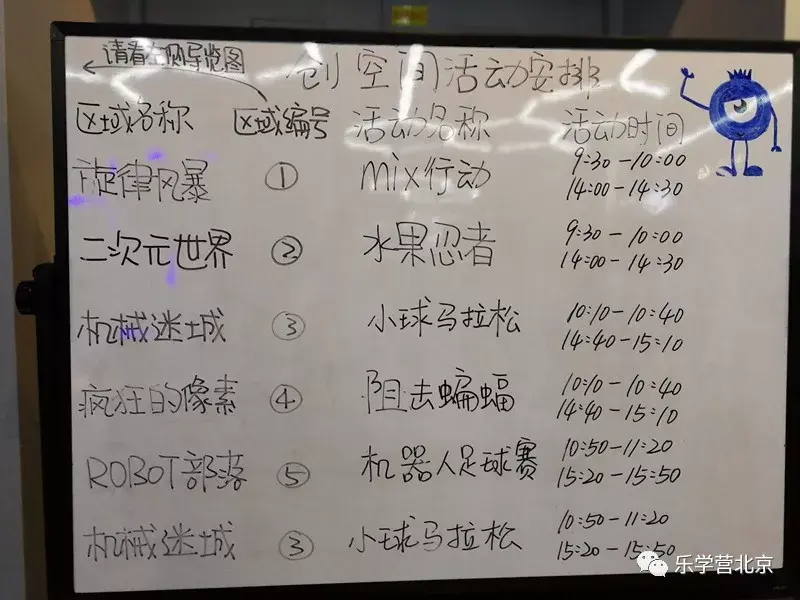 请看左侧导览图
创空间活动安排
区域名称 区域编号 活动名称 活动时间
旋律风暴 ① mix行动 9:30-10:00
14:00-14:30
二次元世界 ② 水果忍者 9:30-10:00
14:00-14:30
机械迷城 ③ 小球马拉松 10:10-10:40
14:40-15:10
疯狂的像素 ④ 阻击蝙蝠 10:10-10:40
14:40-15:10
ROBOT部落 ⑤ 机器人足球赛 10:50-11:20
15:20-15:50
机械迷城 ③ 小球马拉松 10:50-11:20
15:20-15:50
乐学营北京